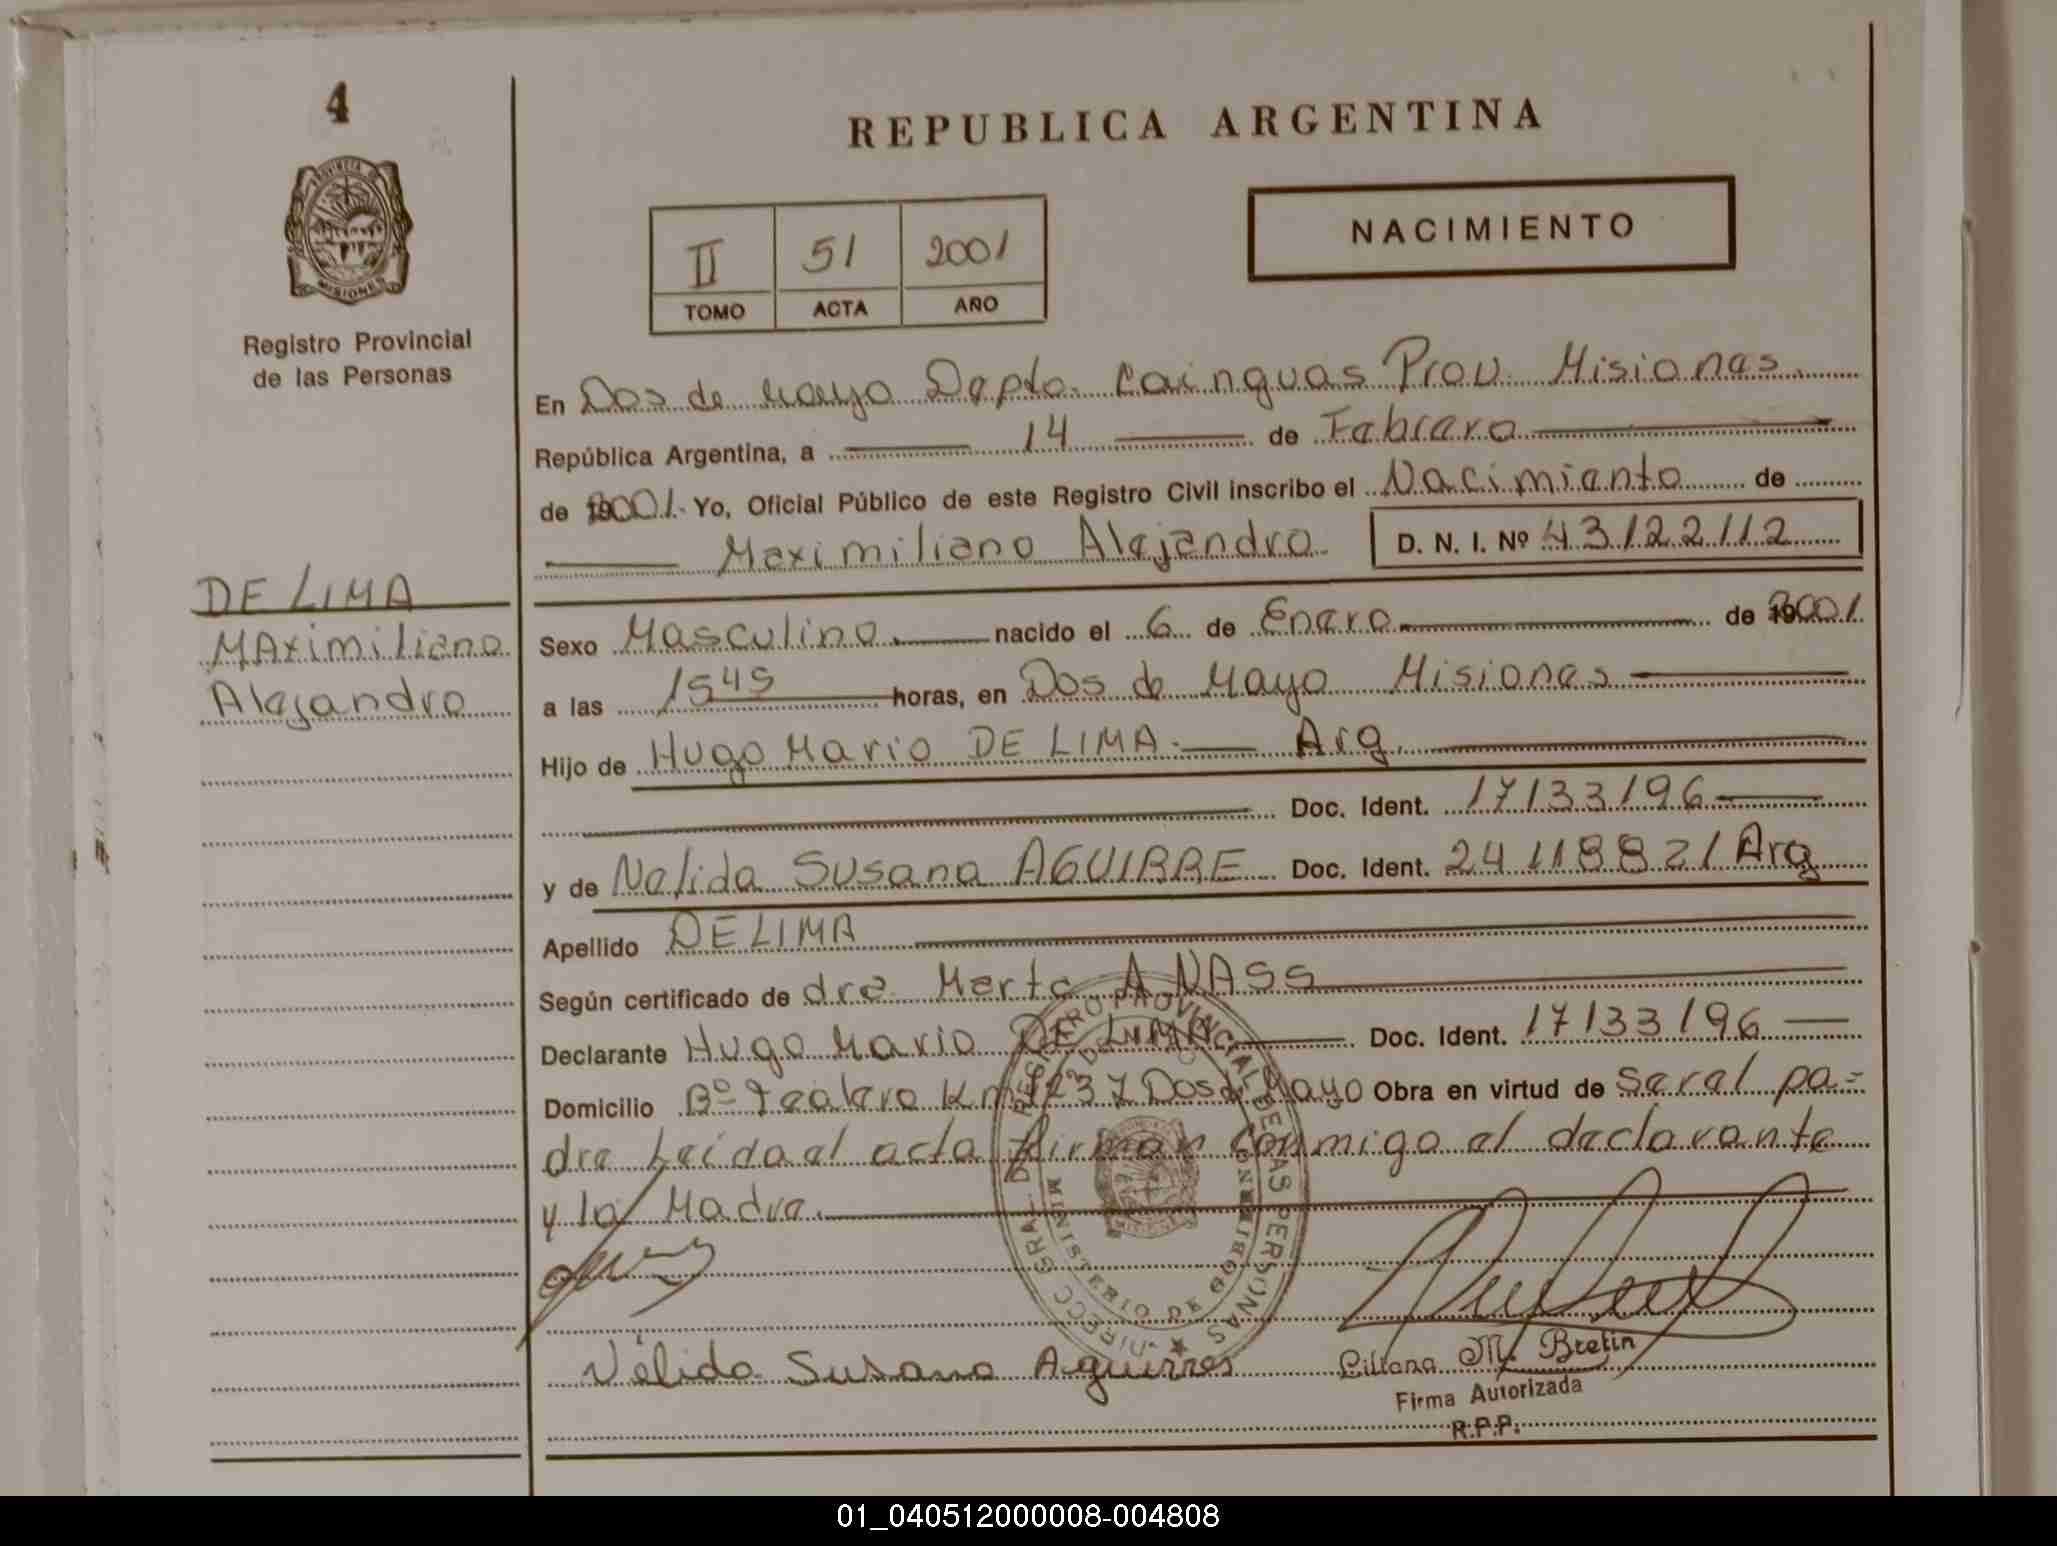 4
REPUBLICA ARGENTINA
PROVINCIA DE
MISIONES
Registro Provincial
de las Personas
II 51 2001
TOMO ACTA AÑO
NACIMIENTO
En Dos de Mayo Depto. Cainguas Prov. Misiones
República Argentina, a 14 de Febrero
de 2001. Yo, Oficial Público de este Registro Civil inscribo el Nacimiento de
Maximiliano Alejandro D. N. I. Nº 43122112
DE LIMA
MAximiliano
Alejandro
Sexo Masculino. nacido el 6 de Enero de 2001.
a las 1545 horas, en Dos de Mayo Misiones
Hijo de Hugo Mario DE LIMA. Arg.
Doc. Ident. 17133196
y de Nelida Susana AGUIRRE Doc. Ident. 24118821 Arg
Apellido DE LIMA
Según certificado de dra. Marta A NASS
Declarante Hugo Mario DE LIMA Doc. Ident. 17133196
Domicilio Bº Km 1237 Dos de Mayo Obra en virtud de ser el pa=
dre Leida el acta firman conmigo el declarante
y la Madre.
DIRECC. GRAL. DEL REGISTRO PROVINCIAL DE LAS PERSONAS
MINISTERIO DE GOBIERNO
Nélida Susana Aguirres
Liliana M. Bretin
Firma Autorizada
R.P.P.
01_040512000008-004808